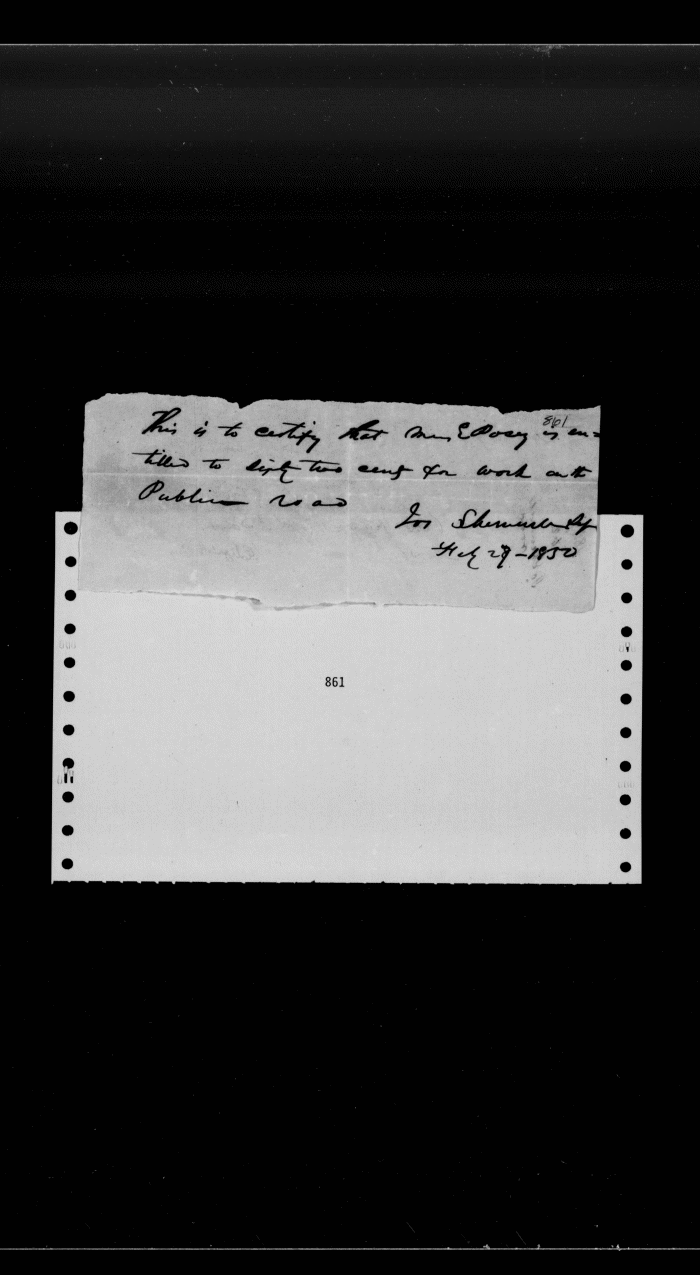 861
This is to certify that Mrs E Posey is en=
titled to sixty two cents for work on th
Public road
Jos
Feb 29-1850
861